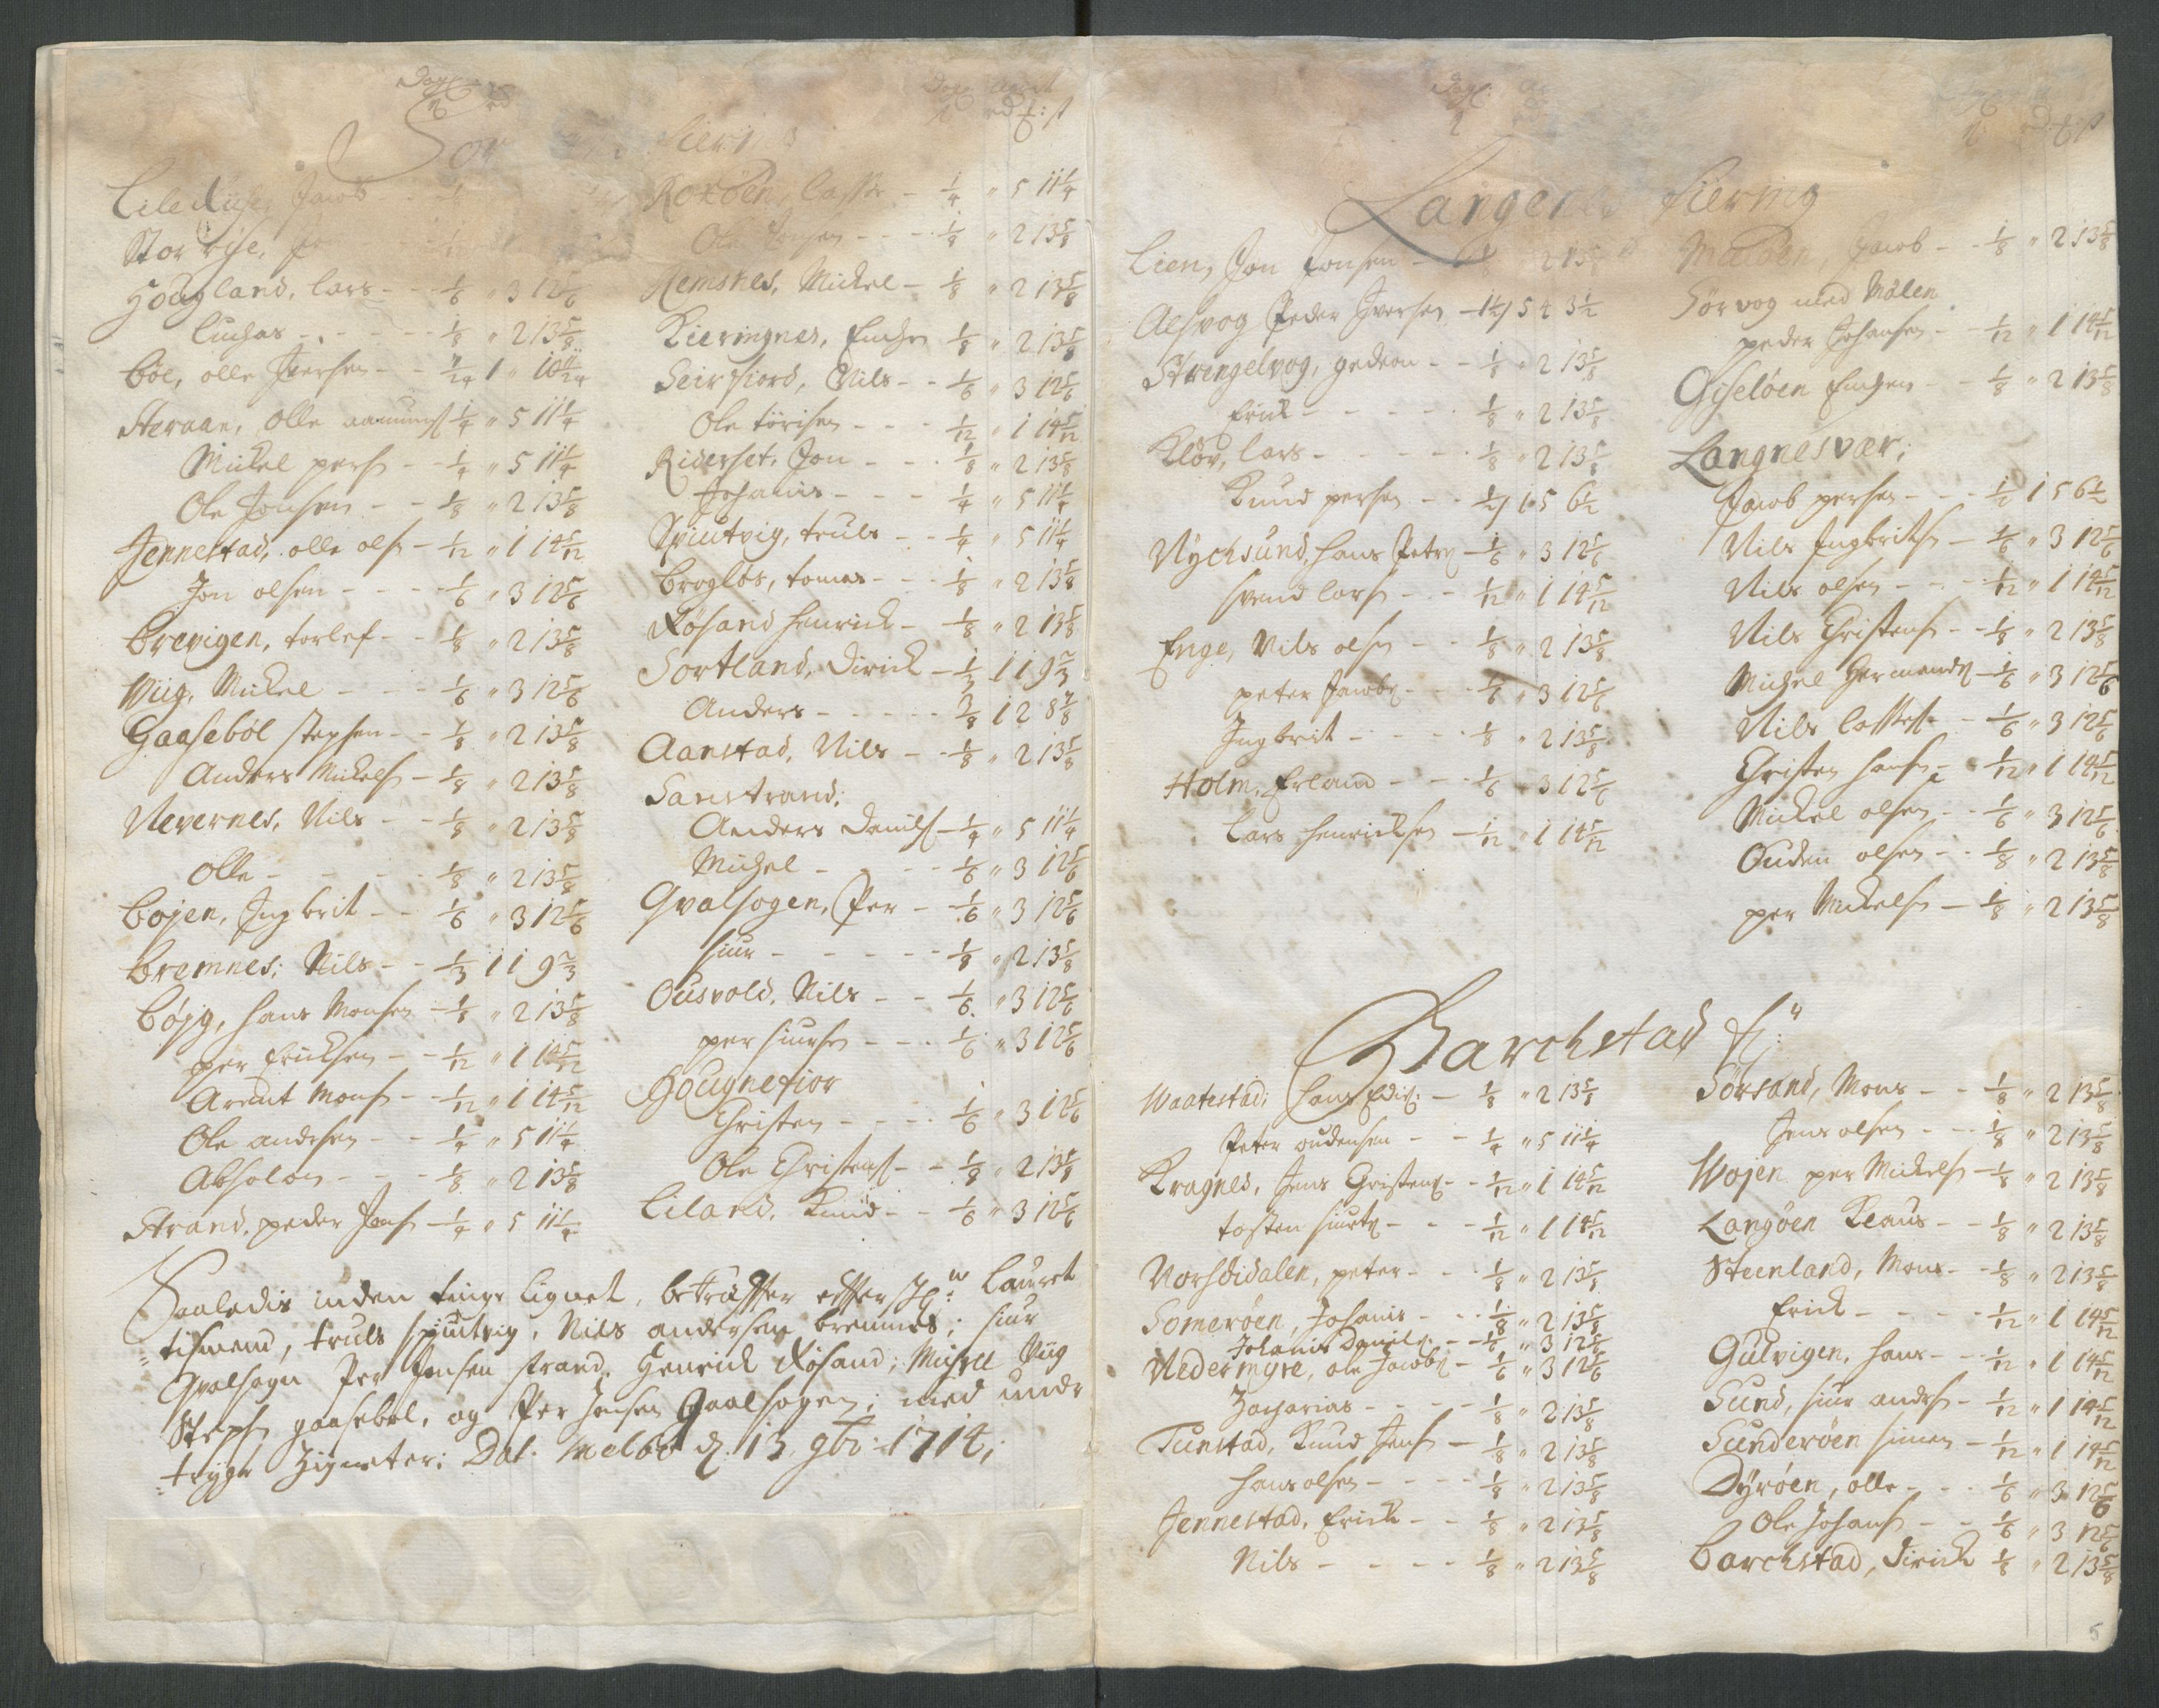 Sor fiering
Lilerüse, Jacob
Stor rise,
Hougland, lars - - 1/6 " 3 12 5/6
Luchas - - - - 1/8 " 2 13 5/8
böe, olle Ifversen - - 7/24 1 " 10 11/24
Steraae, olle aamuns 1/4 " 5 11 1/4
Mickel pers - - 1/4 " 5 11 1/4
Ole Jonsen - - 1/8 " 2 13 5/8
Jennestad, olle ols - 1/12 " 1 14 5/12
Jon olsen - - - 1/6 " 3 12 5/6
brevigen, torlef - - 1/8 " 2 13 5/8
Wiig, Mickel - - - 1/6 " 3 12 5/6
Gaasebøl stephen - - 1/8 " 2 13 5/8
Anders Mickels - 1/8 " 2 13 5/8
Nevernes, Nils - - 1/8 " 2 13 5/8
Olle - - - - 1/8 " 2 13 5/8
bojen, Ingbrit - - 1/6 " 3 12 5/6
bremnes; Nils - - 1/3 1 1 9 2/3
böjg, hans Monsen - 1/8 " 2 13 5/8
per Ericksen - - 1/12 " 1 14 5/12
Arent Mons - - 1/12 " 1 14 5/12
Ole andersen - - 1/4 " 5 11 1/4
Absolon - - - 1/8 " 2 13 5/8
Strand, peder Jens - 1/4 " 5 11 1/4
Rokøen, lasse - 1/4 " 5 11 1/4
Ole Jonsen - - - 1/8 " 2 13 5/8
Remsnes, Mickel - 1/8 " 2 13 5/8
Kieringnes, Enchen 1/8 " 2 13 5/8
Seirfiord, Nils - - 1/6 " 3 12 5/6
Ole törisen - - - 1/12 " 1 14 5/12
Riderset, Jon - - - 1/8 " 2 13 5/8
Johanis - - - 1/4 " 5 11 1/4
Spiutvig, truls - - 1/4 " 5 11 1/4
brogløs, tomas - - 1/8 " 2 13 5/8
Røsand henrick - 1/8 " 2 13 5/8
Sortland, Dirick - 1/3 1 1 9 2/3
Anders - - - - - 3/8 1 2 8 7/8
Aanstad, Nils - - 1/8 " 2 13 5/8
Sanstrand;
Anders Daniels - 1/4 " 5 11 1/4
Michel - - - 1/6 " 3 12 5/6
Qvalsogen, Per - 1/6 " 3 12 5/6
siur - - - - - 1/8 " 2 13 5/8
Ousvold, Nils - - 1/6 " 3 12 5/6
per siursen - - - 1/6 " 3 12 5/6
Hougnefior
Christen - - - - 1/6 " 3 12 5/6
Ole Christens - - 1/8 " 2 13 5/8
Liland, Knud - - 1/6 " 3 12 5/6
Saaledis inden tinge lignet, betræffer effter lauret
tismend, truls spiutvig, Nils andersen bremnes; siur
Qvalsogn Per Jensen strand, Henrick Røsand; Michel Viig
Steph gaasebøl, og Per Jensen Qvalsogen; med under
trygte Zigneter; Dat. Melbo d. 13 9br: 1714;
Langenes fiering
Lien, Jon Jonsen - 1/8 " 2 13 5/8
Alsvog Peder Iversen - 1 1/4 5 4 3 1/2
Strengelvog, gedeon - - 1/8 " 2 13 5/8
Erick - - - - - 1/8 " 2 13 5/8
Kløv, lars - - - - - 1/8 " 2 13 5/8
Knud persen - - 1/2 1 5 6 1/2
Nychsund, hans Peters - 1/6 " 3 12 5/6
svend lars - - 1/12 " 1 14 5/12
Enge, Nils olsen - - 1/8 " 2 13 5/8
peter Jacobs - - - 1/6 " 3 12 5/6
Ingbrit - - - - 1/8 " 2 13 5/8
Holm, Erland - - - 1/6 " 3 12 5/6
Lars henricksen - 1/12 " 1 14 5/12
Maløen, Jacob - - 1/8 " 2 13 5/8
Sörvog med Målen
peder Johansen - - 1/12 " 1 14 5/12
Gisløen Enchen - - 1/8 " 2 13 5/8
Langnesvær;
Jacob persen - - - 1/2 1 5 6 1/2
Nils Ingbritsen - 1/6 " 3 12 5/6
Nils olsen - - - 1/12 " 1 14 5/12
Nils Christens - - 1/8 " 2 13 5/8
Michel Hermands - 1/6 " 3 12 5/6
Nils lasses - - 1/6 " 3 12 5/6
Christen hans - - 1/12 " 1 14 5/12
Mickel olsen - - 1/6 " 3 12 5/6
Ouden olsen - - 1/8 " 2 13 5/8
per Mickels - 1/8 " 2 13 5/8
Barchstad f:
Waatestad; hans Edis: - 1/8 " 2 13 5/8
Peter oudensen - - 1/4 " 5 11 1/4
Kragnes, Jens Christens - - 1/12 " 1 14 5/12
tosten siurts - - - 1/12 " 1 14 5/12
Vorhdidalen, peter - - - 1/8 " 2 13 5/8
Somerøen, Johanis - - - 1/8 " 2 13 5/8
Johanis Daniels: - - 1/6 " 3 12 5/6
Nedermyre, ole Jacobs - 1/6 " 3 12 5/6
Zacharias - - - - 1/8 " 2 13 5/8
Tunstad, Knud Jens - 1/8 " 2 13 5/8
hans olsen - - - - 1/8 " 2 13 5/8
Jennestad, Erick - - 1/8 " 2 13 5/8
Nils - - - - - 1/8 " 2 13 5/8
Sørsand, Mons - - 1/8 " 2 13 5/8
Jens olsen - - - 1/8 " 2 13 5/8
Wojen per Mickels - 1/8 " 2 13 5/8
Langøen Klaus - - 1/8 " 2 13 5/8
Steenland, Mons - - 1/8 " 2 13 5/8
Erick - - - - - 1/12 " 1 14 5/12
Gulvigen, hans - - 1/12 " 1 14 5/12
Sund, siur anders - 1/12 " 1 14 5/12
Sunderøen simen - 1/12 " 1 14 5/12
Dyrøen, olle - - - 1/6 " 3 12 5/6
Ole Johans - - 1/6 " 3 12 5/6
Barchstad, Dirick 1/8 " 2 13 5/8
5